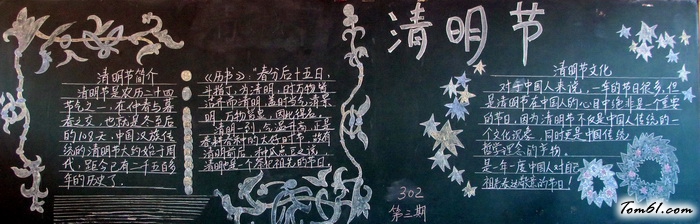 清明节
清明节简介
清明节是农历二十四
节气之一,在仲春与暮
春之交,也就是冬至后
的108天,中国汉族传
统的清明节大约始于周
代,距今已有二千五百多
年的历史了。
《历书》:"春分后十五日,
斗指丁,为清明,时万物皆
洁齐而清明,盖时当气清景
明,万物皆显,因此得名。
清明一到,气温升高,正是
春耕春种的大好时节,故有
清明前后,种瓜点豆之说。
清明节是一个祭祀祖先的节日,
清明节文化
对于中国人来说,一年的节日很多,但
是清明节在中国人的心目中绝非是一个重要
的节日,因为清明节不仅是中国人传统的一
个文化沉淀,同时更是中国传统
哲学理念的
是一年一度中国人对自己
祖先表达敬意的节日!
302
第三期
Tom61.com